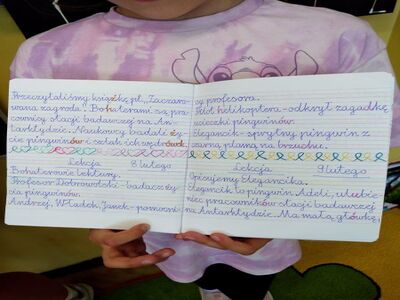 Przeczytaliśmy książkę pt. „Zaczaro-
wana zagroda". Bohaterami są pra-
cownicy stacji badawczej na An-
tarktydzie. Naukowcy badali ży-
cie pingwinów i szlak ich wędrówek.
Lekcja 8 lutego
Bohaterowie lektury.
Profesor Dobrowolski - badacz ży-
cia pingwinów.
Andrzej, Władek, Janek - pomocni-
cy profesora.
Pilot helikoptera - odkrył zagadkę
ucieczki pingwinów.
Elegancik - sprytny pingwin z
czarną plamą na brzuchu.
Lekcja 9 lutego
Opisujemy Elegancika.
Elegancik to pingwin Adeli, ulubie-
niec pracowników stacji badawczej
na Antarktydzie. Ma małą główkę,